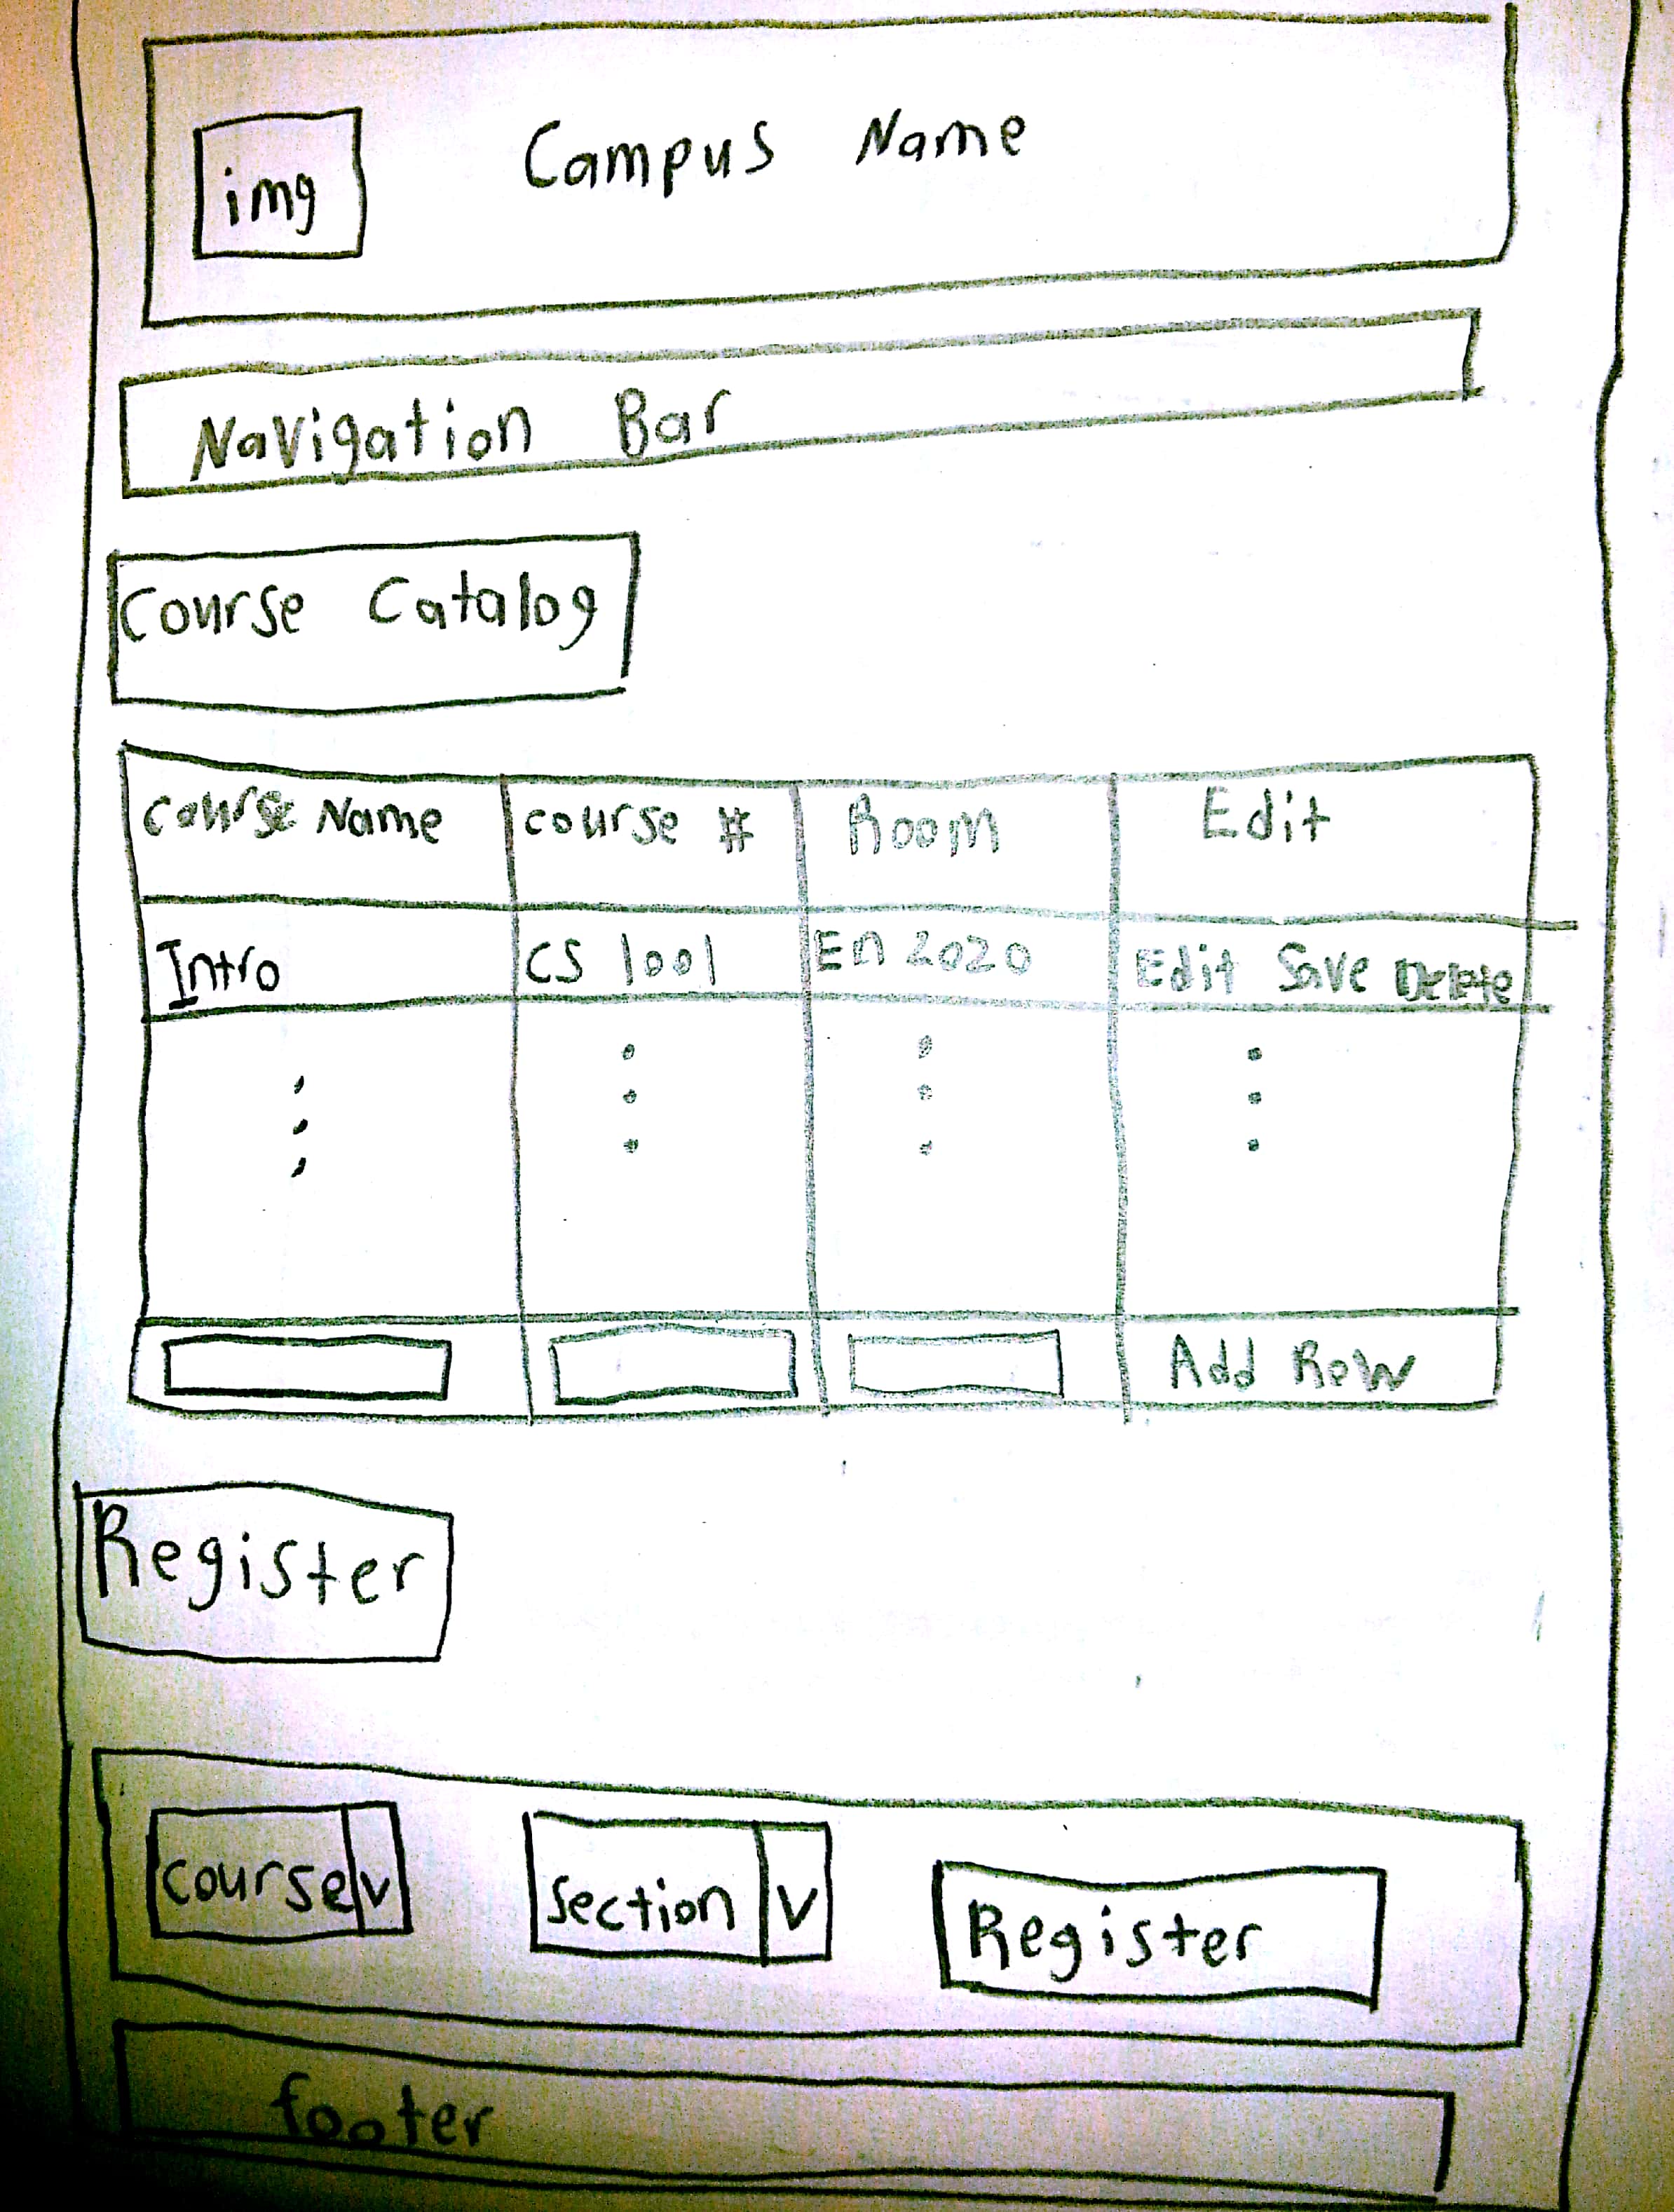 img
Campus Name
Navigation Bar
Course Catalog
Course Name course # Room Edit
Intro CS 1001 En 2020 Edit Save Delete
Add Row
Register
course v section v Register
footer